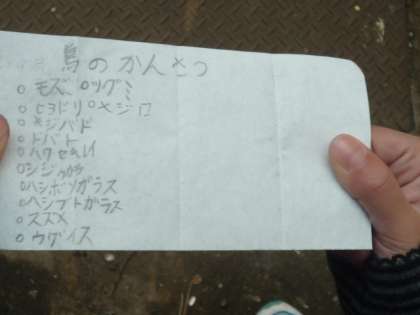 鳥のかんさつ
○モズ、○ツグミ
○ヒヨドリ○メジロ
○キジバト
○ドバト
○ハクセキレイ
○シジュウカラ
○ハシボソガラス
○ハシブトガラス
○スズメ
○ウグイス